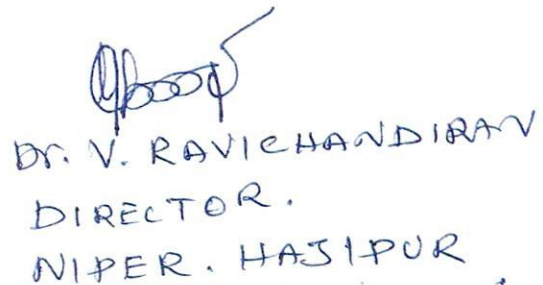 Dr. V. RAVICHANDIRAN
DIRECTOR.
NIPER. HAJIPUR